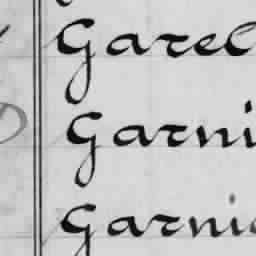 Garel
D Garni
Garnie